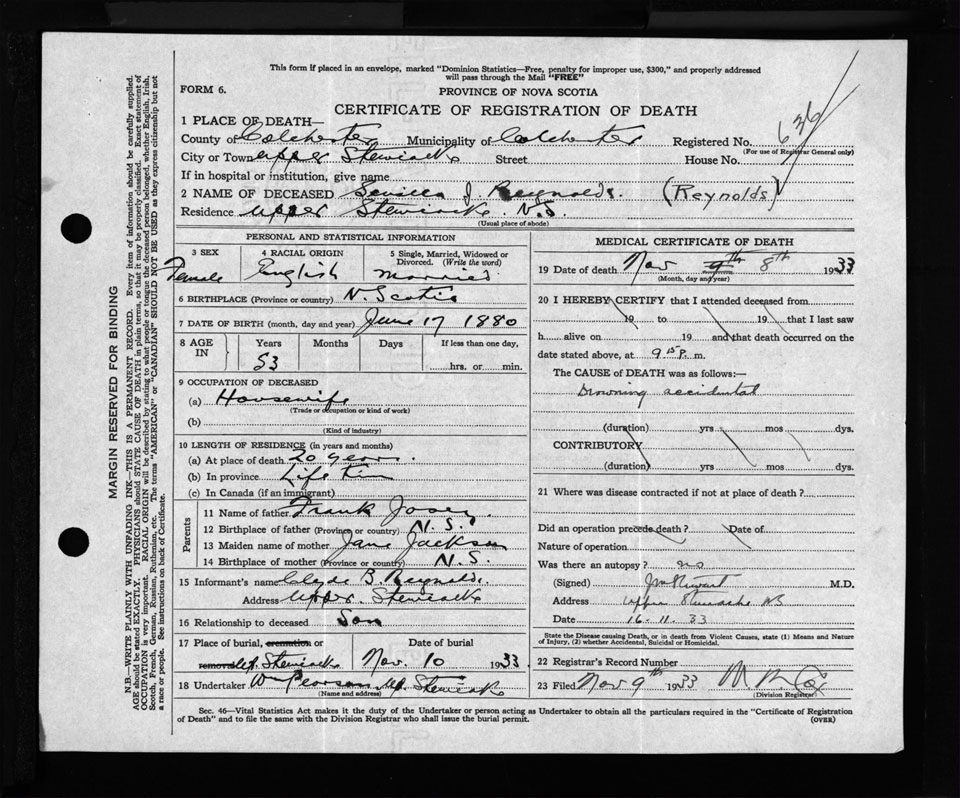 This form if placed in an envelope, marked "Dominion Statistics—Free, penalty for improper use, $300," and properly addressed
will pass through the Mail "FREE"
FORM 6.
PROVINCE OF NOVA SCOTIA
CERTIFICATE OF REGISTRATION OF DEATH
1 PLACE OF DEATH—
County of Colchester Municipality of Colchester Registered No. 636
(For use of Registrar General only)
City or Town Upper Stewiacke Street House No.
If in hospital or institution, give name
2 NAME OF DECEASED J. Reynolds. (Reynolds)
Residence Upper Stewiacke N.S.
(Usual place of abode)
PERSONAL AND STATISTICAL INFORMATION
3 SEX Female
4 RACIAL ORIGIN English
5 Single, Married, Widowed or Divorced. (Write the word) Married
6 BIRTHPLACE (Province or country) N. Scotia
7 DATE OF BIRTH (month, day and year) June 17 1880
8 AGE IN Years Months Days If less than one day,
53 hrs. or min.
9 OCCUPATION OF DECEASED
(a) Housewife
(Trade or occupation or kind of work)
(b)
(Kind of industry)
10 LENGTH OF RESIDENCE (in years and months)
(a) At place of death 20 years.
(b) In province Life Tim
(c) In Canada (if an immigrant)
Parents
11 Name of father Frank Josey
12 Birthplace of father (Province or country) N.S.
13 Maiden name of mother Jane Jackson
14 Birthplace of mother (Province or country) N.S.
15 Informant's name Clyde B. Reynolds.
Address Upper Stewiacke
16 Relationship to deceased Son
17 Place of burial, cremation or Date of burial
removal Up. Stewiacke Nov. 10 1933
18 Undertaker Wm Pearson Up. Stewiacke
(Name and address)
MEDICAL CERTIFICATE OF DEATH
19 Date of death Nov 9th 8th 1933
(Month, day and year)
20 I HEREBY CERTIFY that I attended deceased from
19 to 19 that I last saw
h alive on 19 and that death occurred on the
date stated above, at 9 15 P. m.
The CAUSE of DEATH was as follows:—
Drowning accidental
(duration) yrs mos dys.
CONTRIBUTORY
(duration) yrs mos dys.
21 Where was disease contracted if not at place of death?
Did an operation precede death? Date of
Nature of operation
Was there an autopsy? no
(Signed) M.D.
Address Upper Stewiacke NS
Date 16.11.33
State the Disease causing Death, or in death from Violent Causes, state (1) Means and Nature
of Injury, (2) whether Accidental, Suicidal or Homicidal.
22 Registrar's Record Number
23 Filed Nov 9th 1933
(Division Registrar)
Sec. 46—Vital Statistics Act makes it the duty of the Undertaker or person acting as Undertaker to obtain all the particulars required in the "Certificate of Registration
of Death" and to file the same with the Division Registrar who shall issue the burial permit.
(OVER)
MARGIN RESERVED FOR BINDING
N.B—WRITE PLAINLY WITH UNFADING INK—THIS IS A PERMANENT RECORD. Every item of information should be carefully supplied.
AGE should be stated EXACTLY. PHYSICIANS should STATE CAUSE OF DEATH in plain terms, so that it may be properly classified. Exact statement of
OCCUPATION is very important. RACIAL ORIGIN will be described by stating to what people or tongue the deceased person belonged, whether English, Irish,
Scotch, French, German, Russian, Ruthenian, etc. The terms "AMERICAN" or "CANADIAN" SHOULD NOT BE USED as they express citizenship but not
a race or people. See instructions on back of Certificate.